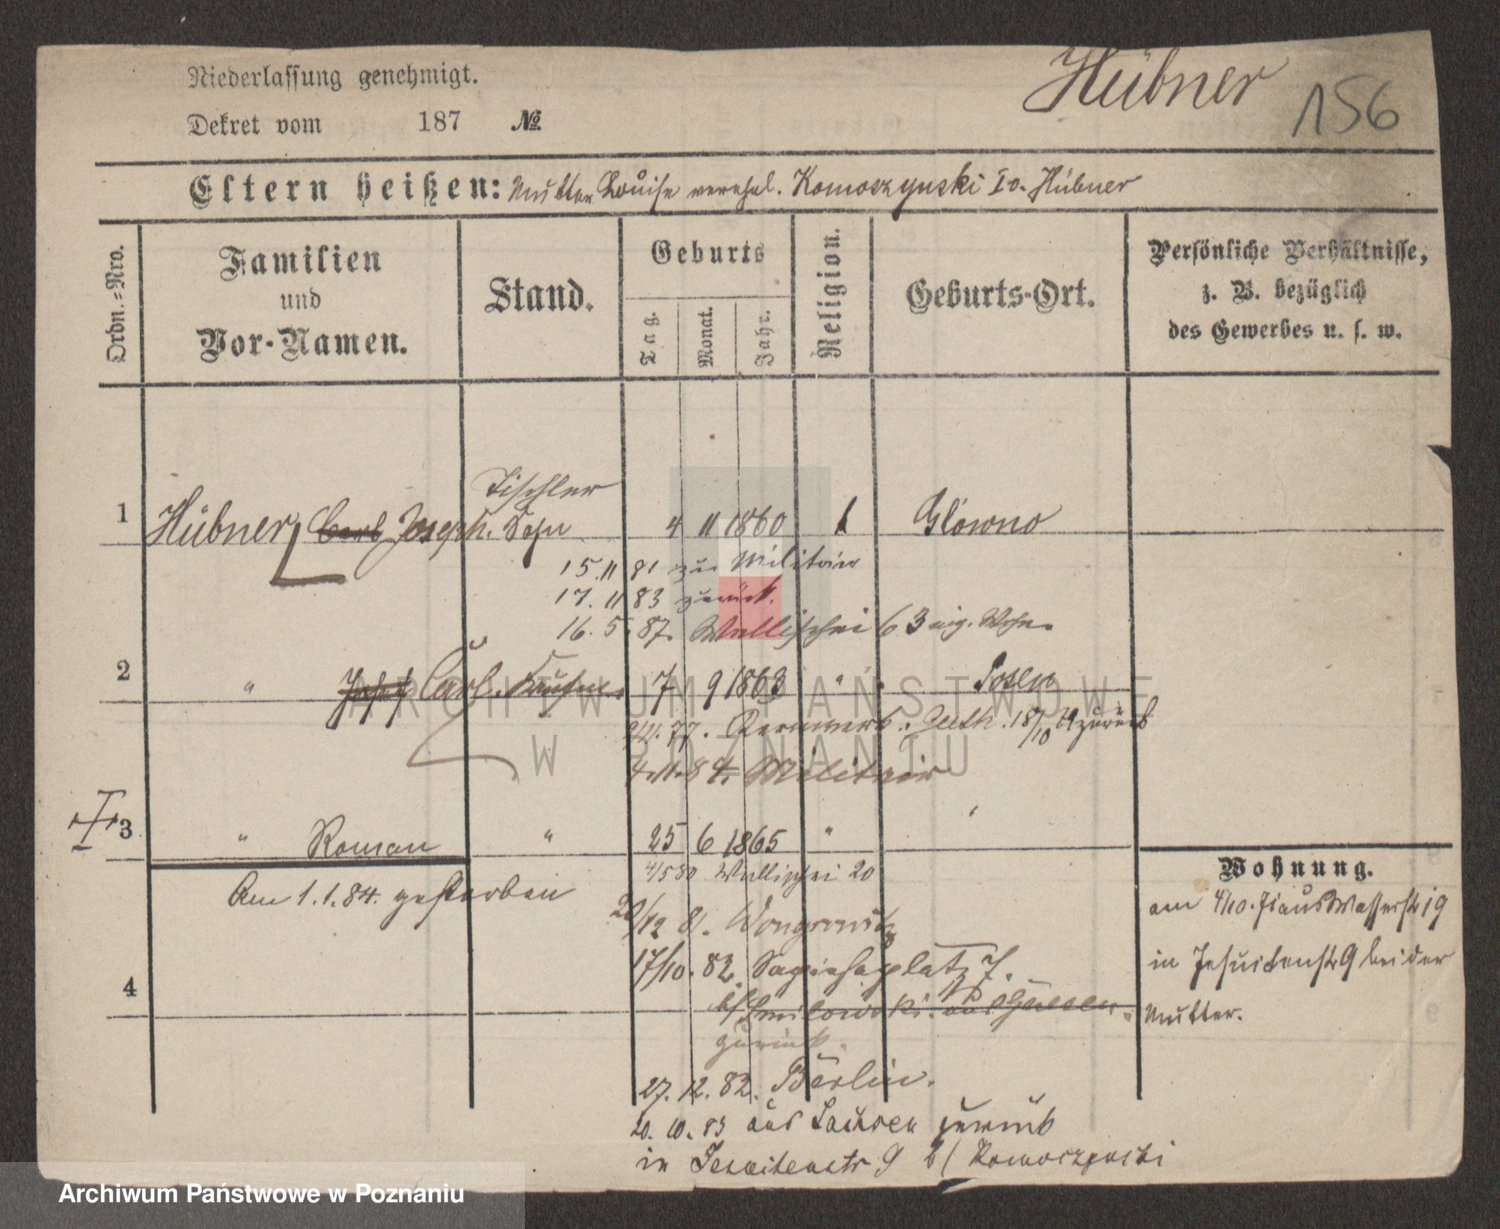 Niederlassung genehmigt.
Hübner
156
Dekret vom 187 №
Eltern heißen: Mutter Louise verehel. Komoszynski I v. Hübner
Ordn.-Nro.
Familien
und
Vor-Namen.
Stand.
Geburts
Tag.
Monat.
Jahr.
Religion.
Geburts-Ort.
Persönliche Verhältnisse,
z. B. bezüglich
des Gewerbes u. s. w.
Tischler
1 Hübner, Carl Joseph. Sohn 4 11 1860 Glowno
15.11 81 zum Militair
17.11 83 zurück.
16.5.87. Wallischei 63 eig. Wohn.
2 " Joseph Carl. 7 9 1863 " Posen
77. 18/10 zurück
4.11.84. Militair
3 " Roman " 25 6 1865 "
4/5 80 Wallischei 20
Am 1.1.84. gestorben
Wohnung.
am 4/10. 71 aus Wasserstr 19
in Jesuitenstr 9 bei der
Mutter.
22/12 81. Wongrowitz
17/10. 82. Sapiehaplatz 7.
4
b/ Smilowski. aus Gnesen.
zurück.
27. 12. 82. Berlin.
20. 10. 83 aus Sachsen zurück
in Jesuitenstr 9 b/ Komoszynski
ARCHIWUM PAŃSTWOWE
W POZNANIU
Archiwum Państwowe w Poznaniu